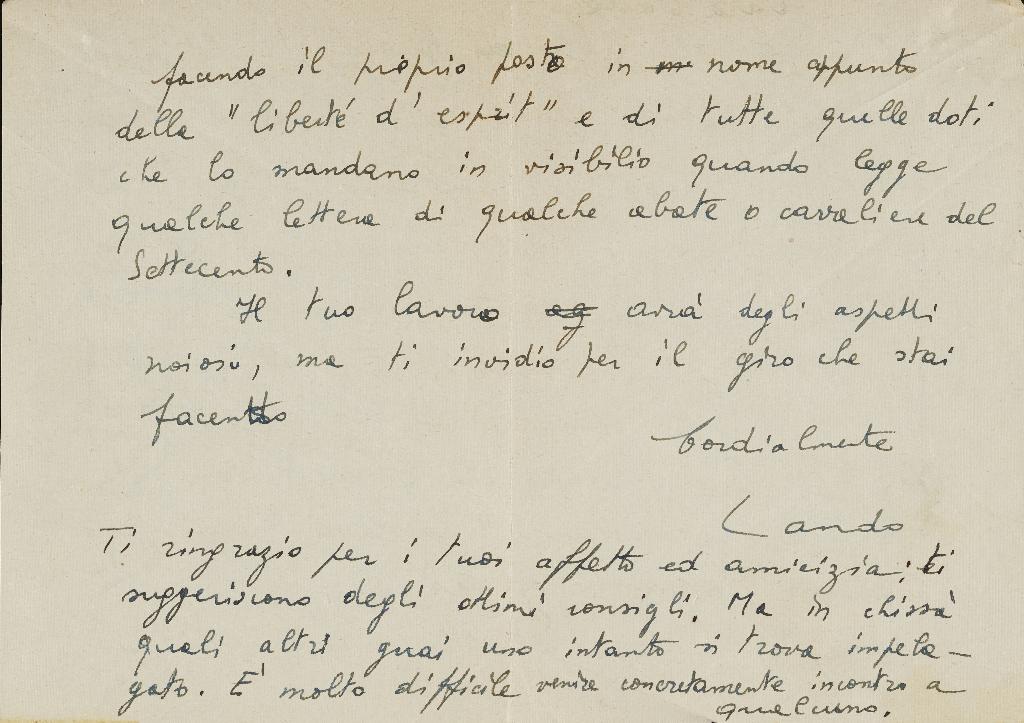 facendo il pròprio posto in nome appunto
della "liberté d'esprit" e di tutte quelle doti
che lo mandano in visibilio quando legge
qualche lettera di qualche abate o cavaliere del
Settecento.
Il tuo lavoro avrà degli aspetti
noiosi, ma ti invidio per il giro che stai
facendo
Cordialmente
Lando
Ti ringrazio per i tuoi affetto ed amicizia; ti
suggeriscono degli ottimi consigli. Ma in chissà
quali altri guai uno intanto si trova impela-
gato. E' molto difficile venire concretamente incontro a
qualcuno.